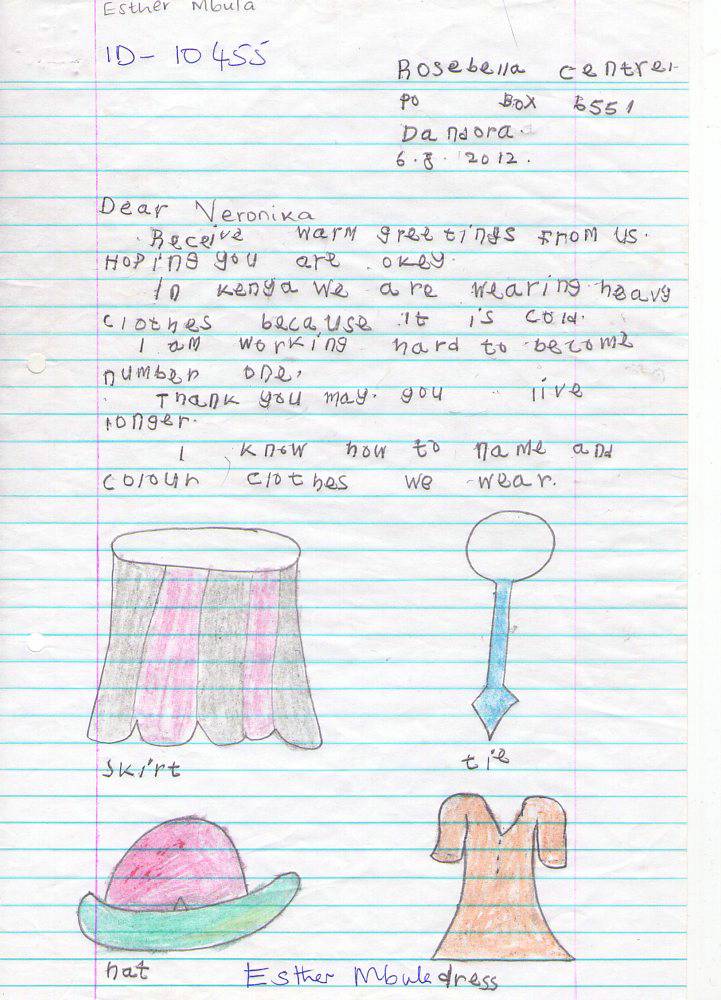 Esther Mbula
ID- 10455
Rosebella centre.
PO BOX 6551
Dandora.
6.8. 2012.
Dear Veronika
Receive warm greetings from us.
Hoping you are okey.
In kenya we are wearing heavy
clothes because it is cold.
I am working hard to become
number one.
Thank you may. you live
longer.
I know how to name and
colour clothes we wear.
skirt
tie
hat
Esther Mbula
dress